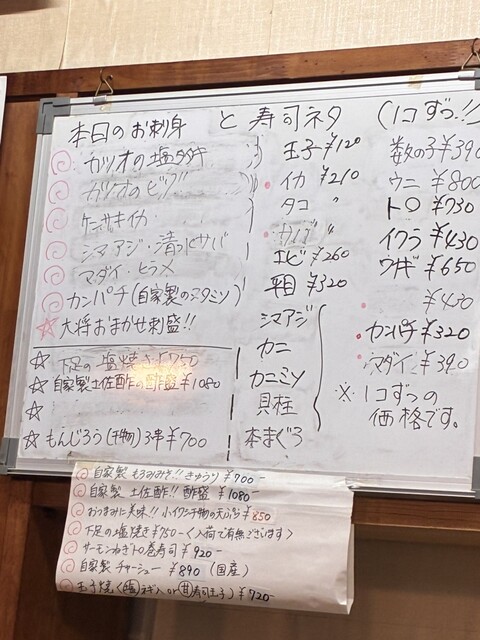 本日のお刺身 と 寿司ネタ (1コずつ!!)
カツオの塩タタキ
カツオのピリ
ケンサキイカ
シマアジ・清水サバ
マダイ・ヒラメ
カンパチ(自家製の
大将おまかせ刺盛!!
下足の塩焼き ¥750
自家製土佐酢の酢盛 ¥1080
もんじろう(干物)3串 ¥700
玉子 ¥120
イカ ¥210
タコ 〃
エビ ¥260
平目 ¥320
シマアジ
カニ
カニミソ
貝柱
本まぐろ
数の子 ¥390
ウニ ¥800
トロ ¥730
イクラ ¥430
ウナギ ¥650
¥430
カンパチ ¥320
マダイ ¥390
※1コずつの
価格です。
自家製 もろみみそ!! きゅうり ¥700-
自家製 土佐酢!! 酢盛 ¥1080-
おつまみに美味!! 小イワシ干物の天ぷら ¥850
下足の塩焼き ¥750-〈入荷で有無ございます〉
サーモンねぎトロ巻寿司 ¥920-
自家製 チャーシュー ¥890 (国産)
玉子焼〈塩ネギ入 or 甘寿司玉子〉¥720-